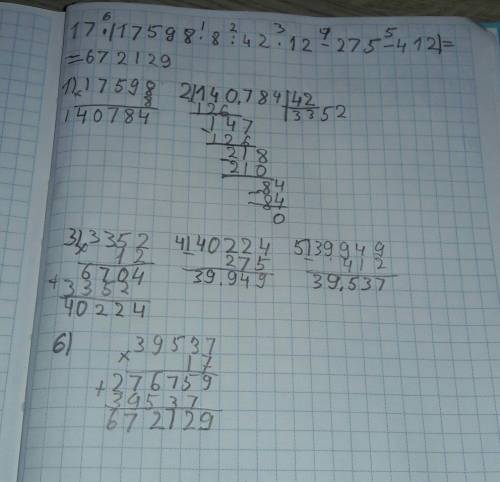 17·(17598·8:42·12-275-412)=
6 1 2 3 4 5
=672129
1) 17598
× 8
140784
2) 140.784 | 42
126 3352
147
126
218
- 210
- 84
- 84
0
3) 3352
× 12
6704
+ 3352
40224
4) 40224
- 275
39.949
5) 39949
- 412
39.537
6)
39537
× 17
+ 276759
39537
672129